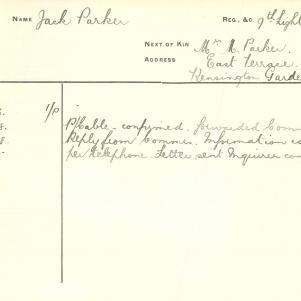 NAME Jack Parker REG., &C. 9th Light
NEXT OF KIN Mr M. Parker.
ADDRESS East Terrace.
Kensington Garde
1/P
P/Cable - confirmed. forwarded Comm
Reply from Commrs. Information co
per telephone. Letter sent Inquirer con